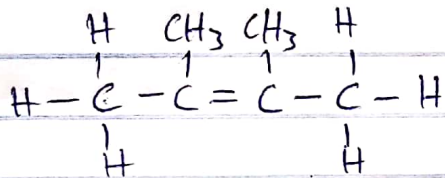 H CH3 CH3 H
H - C - C = C - C - H
H H